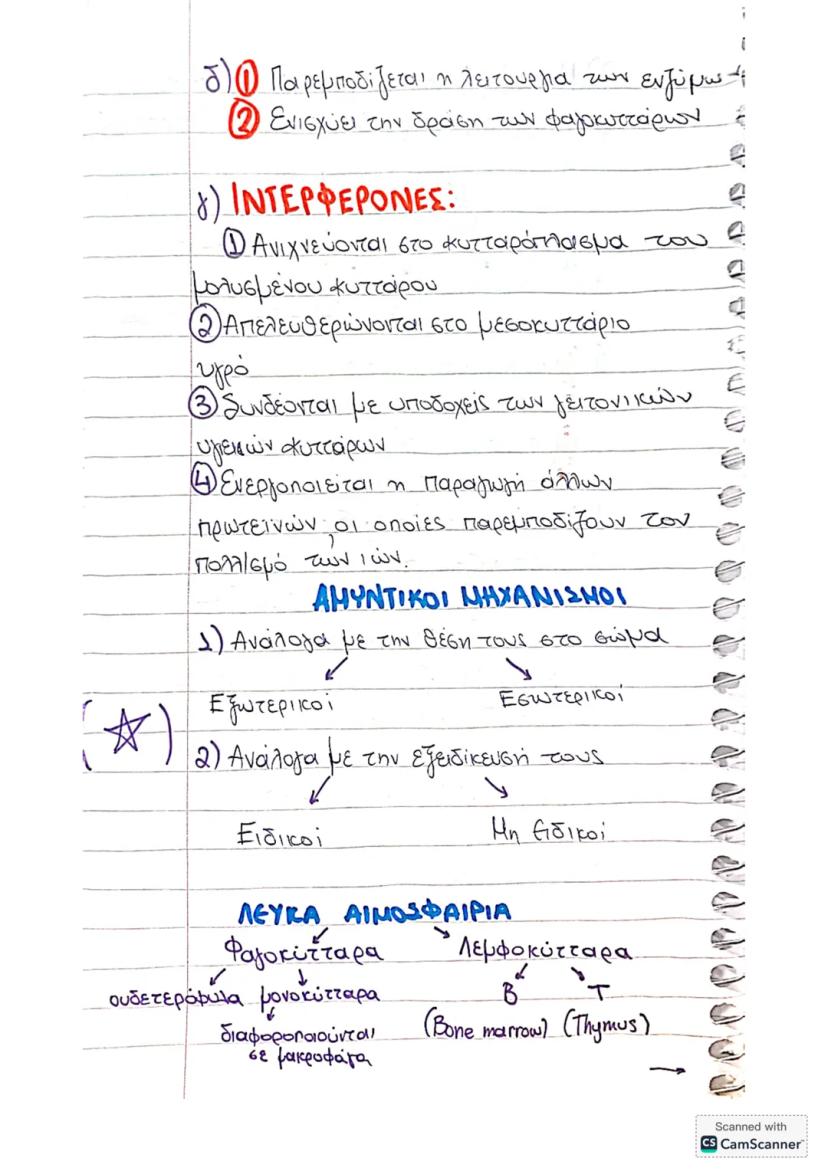 δ) ① Παρεμποδίζεται η λειτουργία των ενζύμων
② Ενισχύει την δράση των φαγοκυττάρων
γ) ΙΝΤΕΡΦΕΡΟΝΕΣ:
① Ανιχνεύονται στο κυτταρόπλασμα του
μολυσμένου κυττάρου
② Απελευθερώνονται στο μεσοκυττάριο
υγρό
③ Συνδέονται με υποδοχείς των γειτονικών
υγειών κυττάρων
④ Ενεργοποιείται η παραγωγή άλλων
πρωτεϊνών, οι οποίες παρεμποδίζουν τον
πολ/σμό των ιών.
ΑΜΥΝΤΙΚΟΙ ΜΗΧΑΝΙΣΜΟΙ
1) Ανάλογα με την θέση τους στο σώμα
Εξωτερικοί Εσωτερικοί
2) Ανάλογα με την εξειδίκευσή τους
Ειδικοί Μη ειδικοί
ΛΕΥΚΑ ΑΙΜΟΣΦΑΙΡΙΑ
Φαγοκύτταρα Λεμφοκύτταρα
ουδετερόφιλα μονοκύτταρα Β Τ
διαφοροποιούνται (Bone marrow) (Thymus)
σε μακροφάγα
Scanned with
CS CamScanner